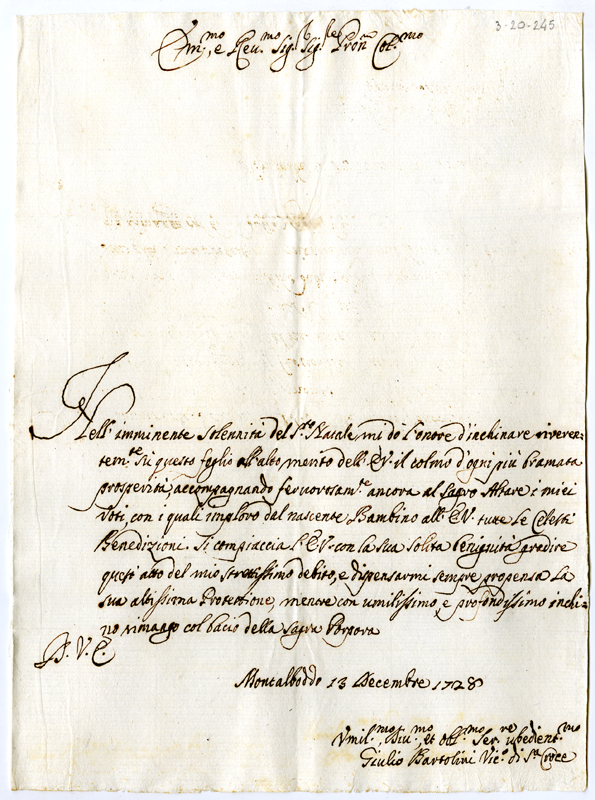 3-20-245
Em:mo, e Rev:mo Sig:r Sig:r Pron Col:mo
Nell' imminente Solennità del S:to Natale mi dò l'onore d'inchinare riveren=
tem:te su questo foglio all'alto merito dell'E.V. il colmo d'ogni più bramata
prosperità, accompagnando fervorosam:te ancora al Sagro Altare i miei
Voti, con i quali imploro dal nascente Bambino all'E.V. tutte le Celesti
Benedizioni. Si compiaccia l'E.V. con la sua solita benignità gradire
quest'atto del mio strettissimo debito, e dispensarmi sempre propensa la
sua altissima Protettione, mentre con umilissimo, e profondissimo inchi=
no rimango col bacio della Sagra Porpora
D. V. E.
Montalboddo 13 Decembre 1728
Vmil:mo Div:mo, et obl:mo Ser:re ubedient:mo
Giulio Bartolini Vic:o di S:ta Croce